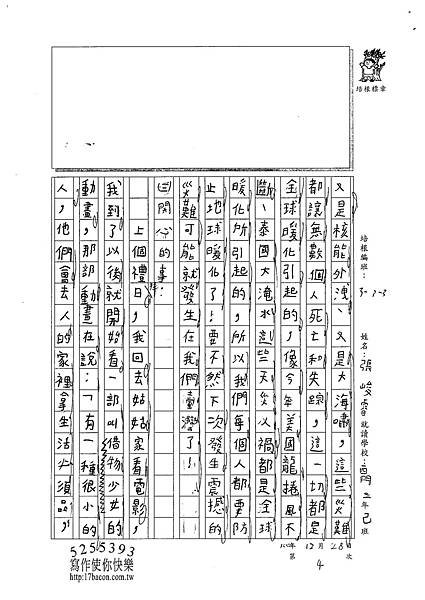 培根標章
培根編班：3-1-3
姓名：張峻睿
就讀學校：昌門三年己班
100年12月28日
第4次
又是核能外洩、又是大海嘯，這些災難
都讓無數個人死亡和失蹤，這一切都是
全球暖化引起的，像今年美國龍捲風不
斷、泰國大淹水這些天災人禍都是全球
暖化所引起的，所以我們每個人都要防
止地球暖化了！要不然下次發生震撼的
災難可能就發生在我們臺灣了！
(三)開心的事：
上個禮拜日，我回去姑姑家看電影，
我到了以後就開始看一部叫借物少女的
動畫，那部動畫在說：「有一種很小的
人，他們會去人的家裡拿生活必須品，
5255393
寫作使你快樂
http://17bacon.com.tw